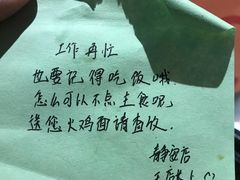 工作再忙
也要记得吃饭哦
怎么可以不点主食呢,
送您火鸡面请查收.
静安店